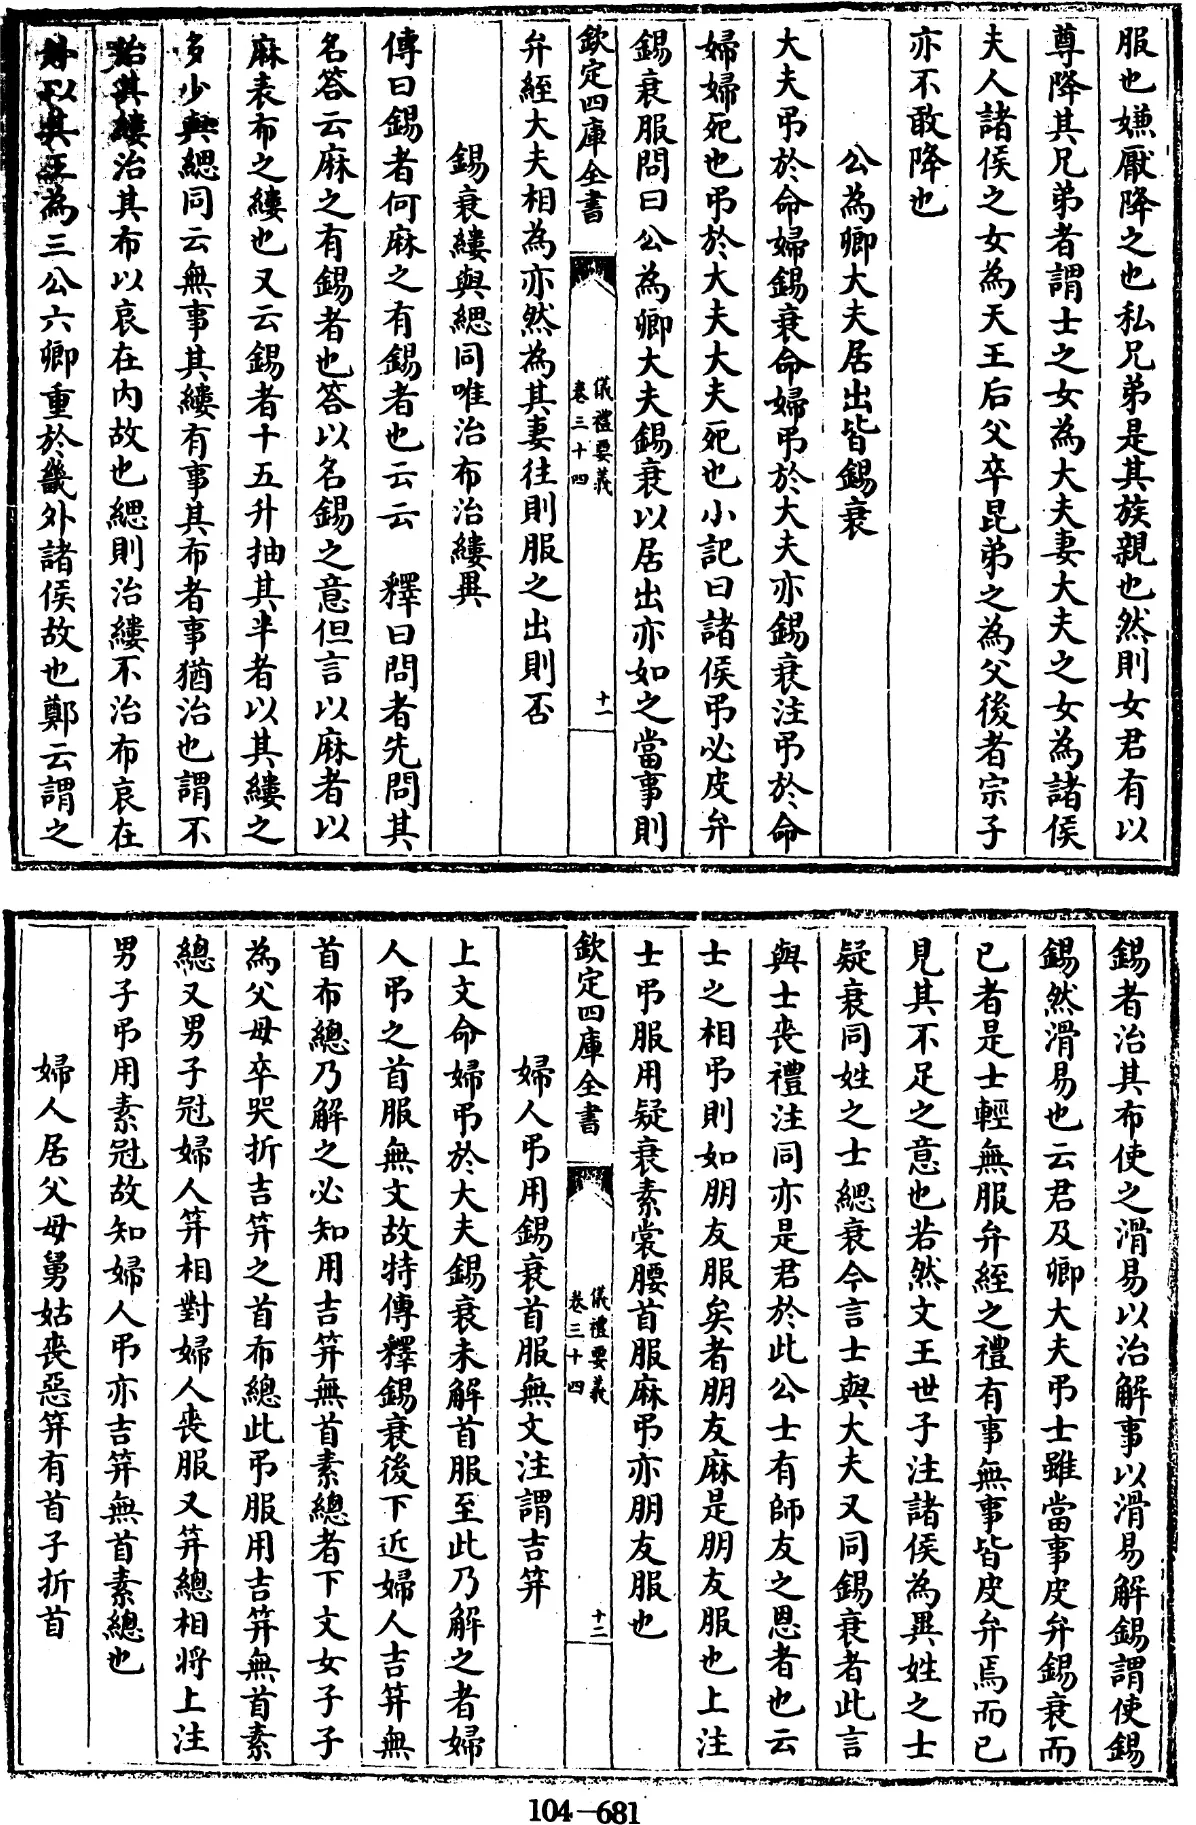 服也嫌厭降之也私兄弟是其族親也然則女君有以
尊降其兄弟者謂士之女為大夫妻大夫之女為諸侯
夫人諸侯之女為天王后父卒昆弟之為父後者宗子
亦不敢降也
公為卿大夫居出皆錫衰
大夫弔於命婦錫衰命婦弔於大夫亦錫衰注弔於命
婦婦死也弔於大夫大夫死也小記曰諸侯弔必皮弁
錫衰服問曰公為卿大夫錫衰以居出亦如之當事則
欽定四庫全書
儀禮要義
卷三十四
十一
弁絰大夫相為亦然為其妻往則服之出則否
錫衰縷與緦同唯治布治縷異
傳曰錫者何麻之有錫者也云云　釋曰問者先問其
名答云麻之有錫者也答以名錫之意但言以麻者以
麻表布之縷也又云錫者十五升抽其半者以其縷之
多少與緦同云無事其縷有事其布者事猶治也謂不
治其縷治其布以哀在內故也緦則治縷不治布哀在
外以其王為三公六卿重於畿外諸侯故也鄭云謂之
錫者治其布使之滑易以治解事以滑易解錫謂使錫
錫然滑易也云君及卿大夫弔士雖當事皮弁錫衰而
已者是士輕無服弁絰之禮有事無事皆皮弁焉而已
見其不足之意也若然文王世子注諸侯為異姓之士
疑衰同姓之士緦衰今言士與大夫又同錫衰者此言
與士喪禮注同亦是君於此公士有師友之恩者也云
士之相弔則如朋友服矣者朋友麻是朋友服也上注
士弔服用疑衰素裳腰首服麻弔亦朋友服也
欽定四庫全書
儀禮要義
卷三十四
十二
婦人弔用錫衰首服無文注謂吉笄
上文命婦弔於大夫錫衰未解首服至此乃解之者婦
人弔之首服無文故特傳釋錫衰後下近婦人吉笄無
首布總乃解之必知用吉笄無首素總者下文女子子
為父母卒哭折吉笄之首布總此弔服用吉笄無首素
總又男子冠婦人笄相對婦人喪服又笄總相將上注
男子弔用素冠故知婦人弔亦吉笄無首素總也
婦人居父母舅姑喪惡笄有首子折首
104—681